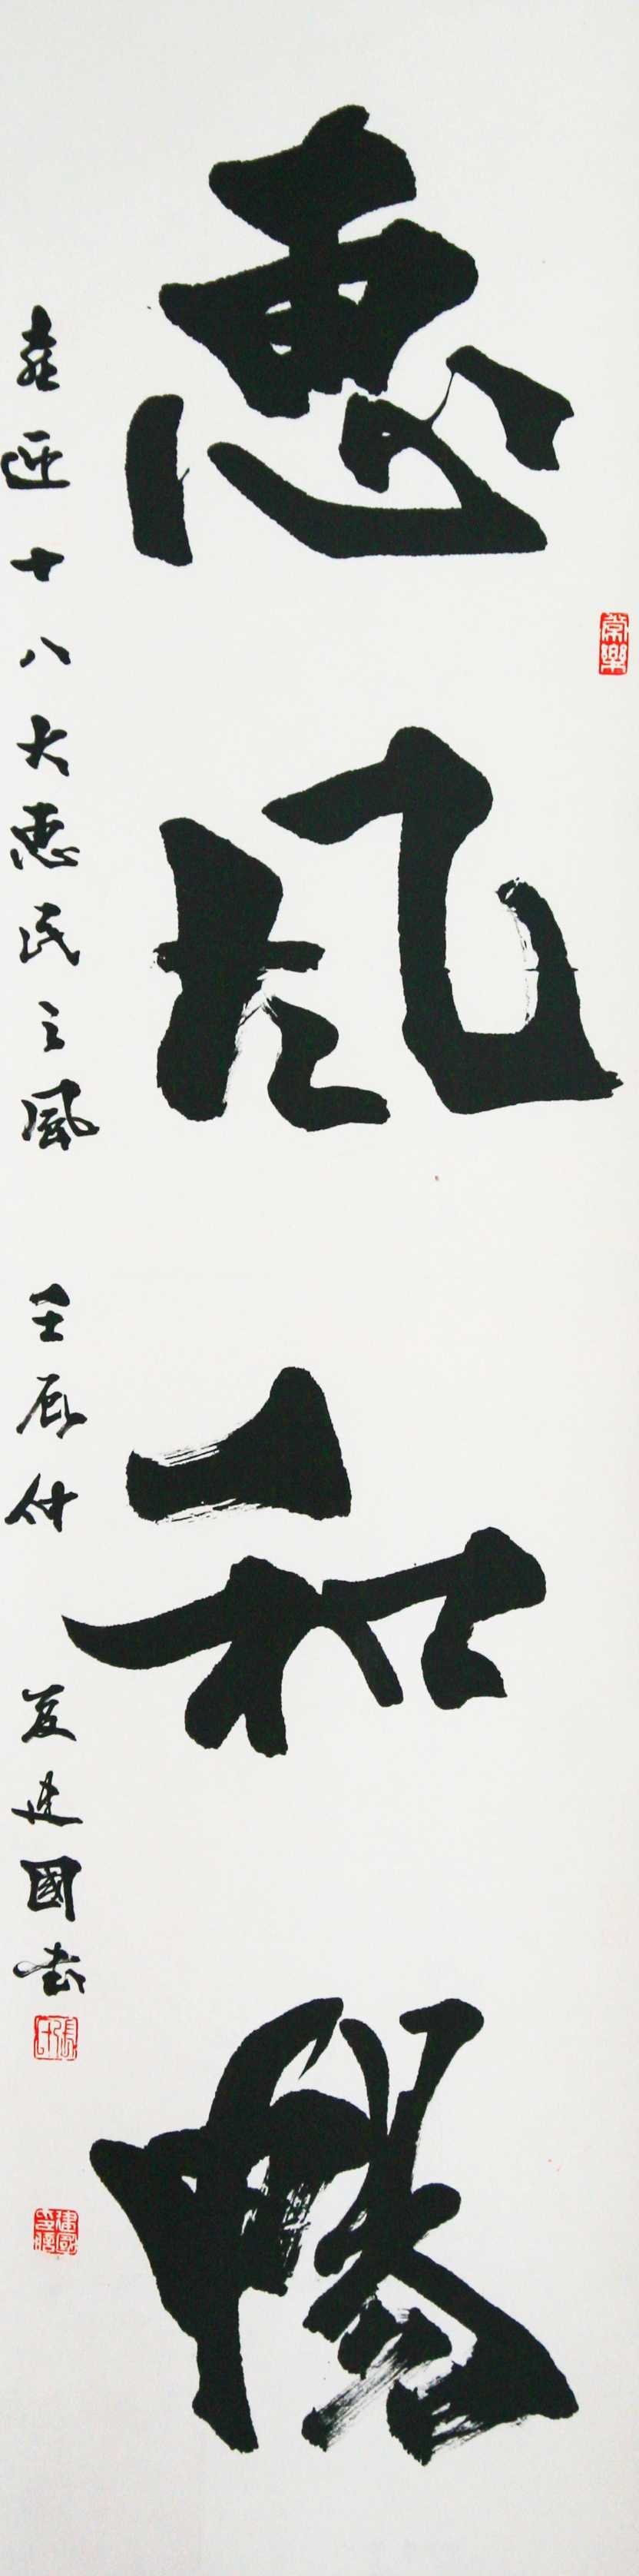 惠風和暢
喜迎十八大惠民之風 壬辰付 夏建國書
常樂